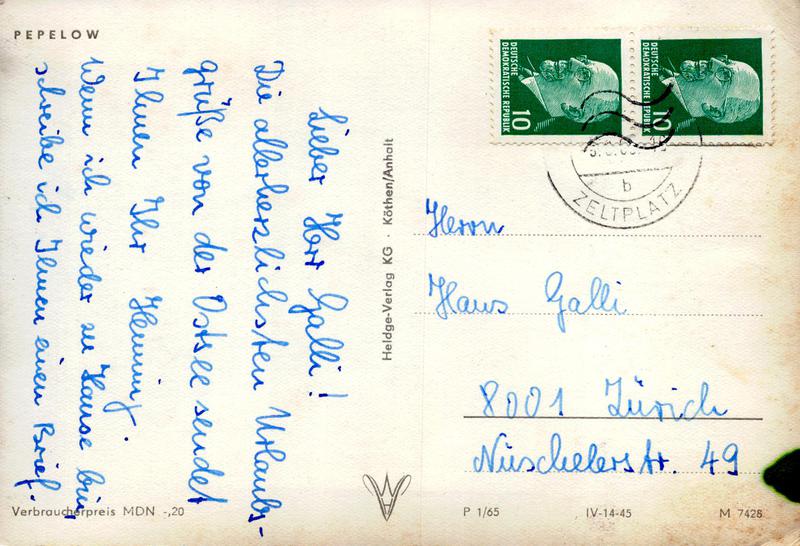 PEPELOW
Lieber Herr Galli!
Die allerherzlichsten Urlaubs-
grüße von der Ostsee sendet
Ihnen Ihr Henning.
Wenn ich wieder zu Hause bin,
schreibe ich Ihnen einen Brief.
Verbraucherpreis MDN -,20
Heldge-Verlag KG · Köthen/Anhalt
DEUTSCHE
DEMOKRATISCHE REPUBLIK
10
DEUTSCHE
DEMOKRATISCHE REPUBLIK
10
b
ZELTPLATZ
Herrn
Hans Galli
8001 Zürich
Nüschelerstr. 49
P 1/65
IV-14-45
M 7428